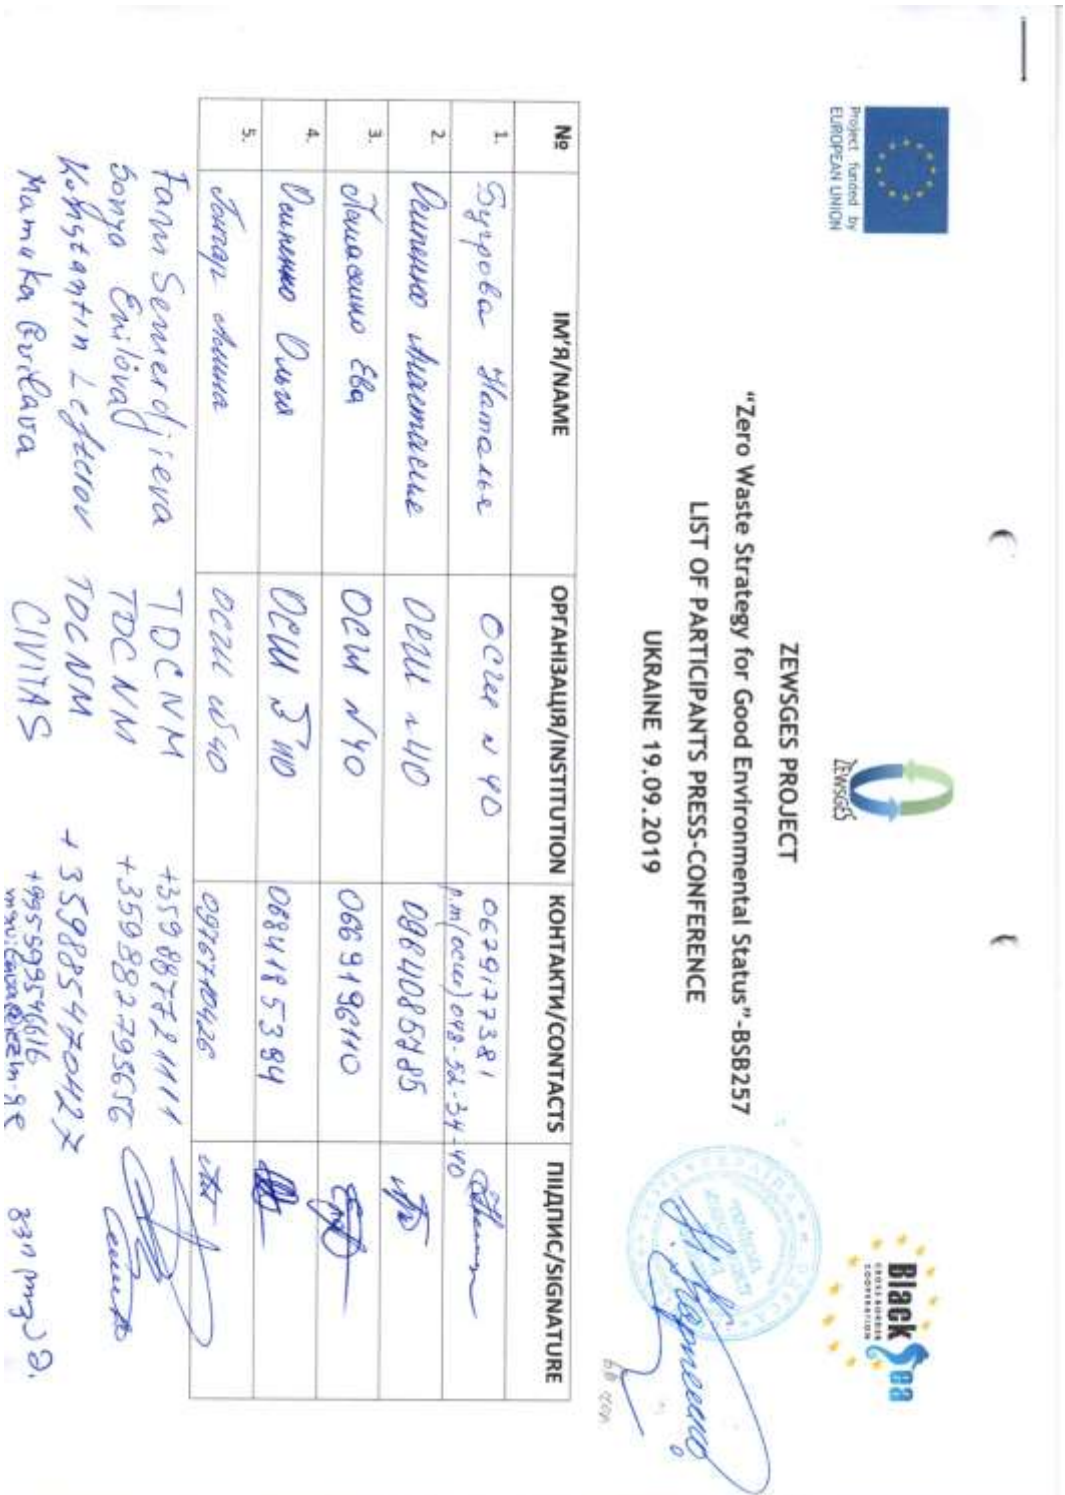 Project funded by
EUROPEAN UNION
ZEWSGES
Black Sea
CROSS BORDER
COOPERATION
ZEWSGES PROJECT
"Zero Waste Strategy for Good Environmental Status"-BSB257
LIST OF PARTICIPANTS PRESS-CONFERENCE
UKRAINE 19.09.2019
№ ІМ'Я/NAME ОРГАНІЗАЦІЯ/INSTITUTION КОНТАКТИ/CONTACTS ПІІДПИС/SIGNATURE
1. Бугрова Наталья ОСШ N 40 0679177381
р.т(осш) 048-52-34-40
2. Осипенко Анастасия 40
3. Ева ОСШ N40 0669196110
4. Осипенко Ольга ОСШ 40 0684185384
5. Алина 40 0976710426
Fani Semerdjieva TDCNM +359887721111
Sonya Enilova TDCNM +359882795656
Konstantin Lefterov TDCNM +359885470427
Mamuka Gvilava CIVITAS +995599546616
mgvilava@iczm.ge